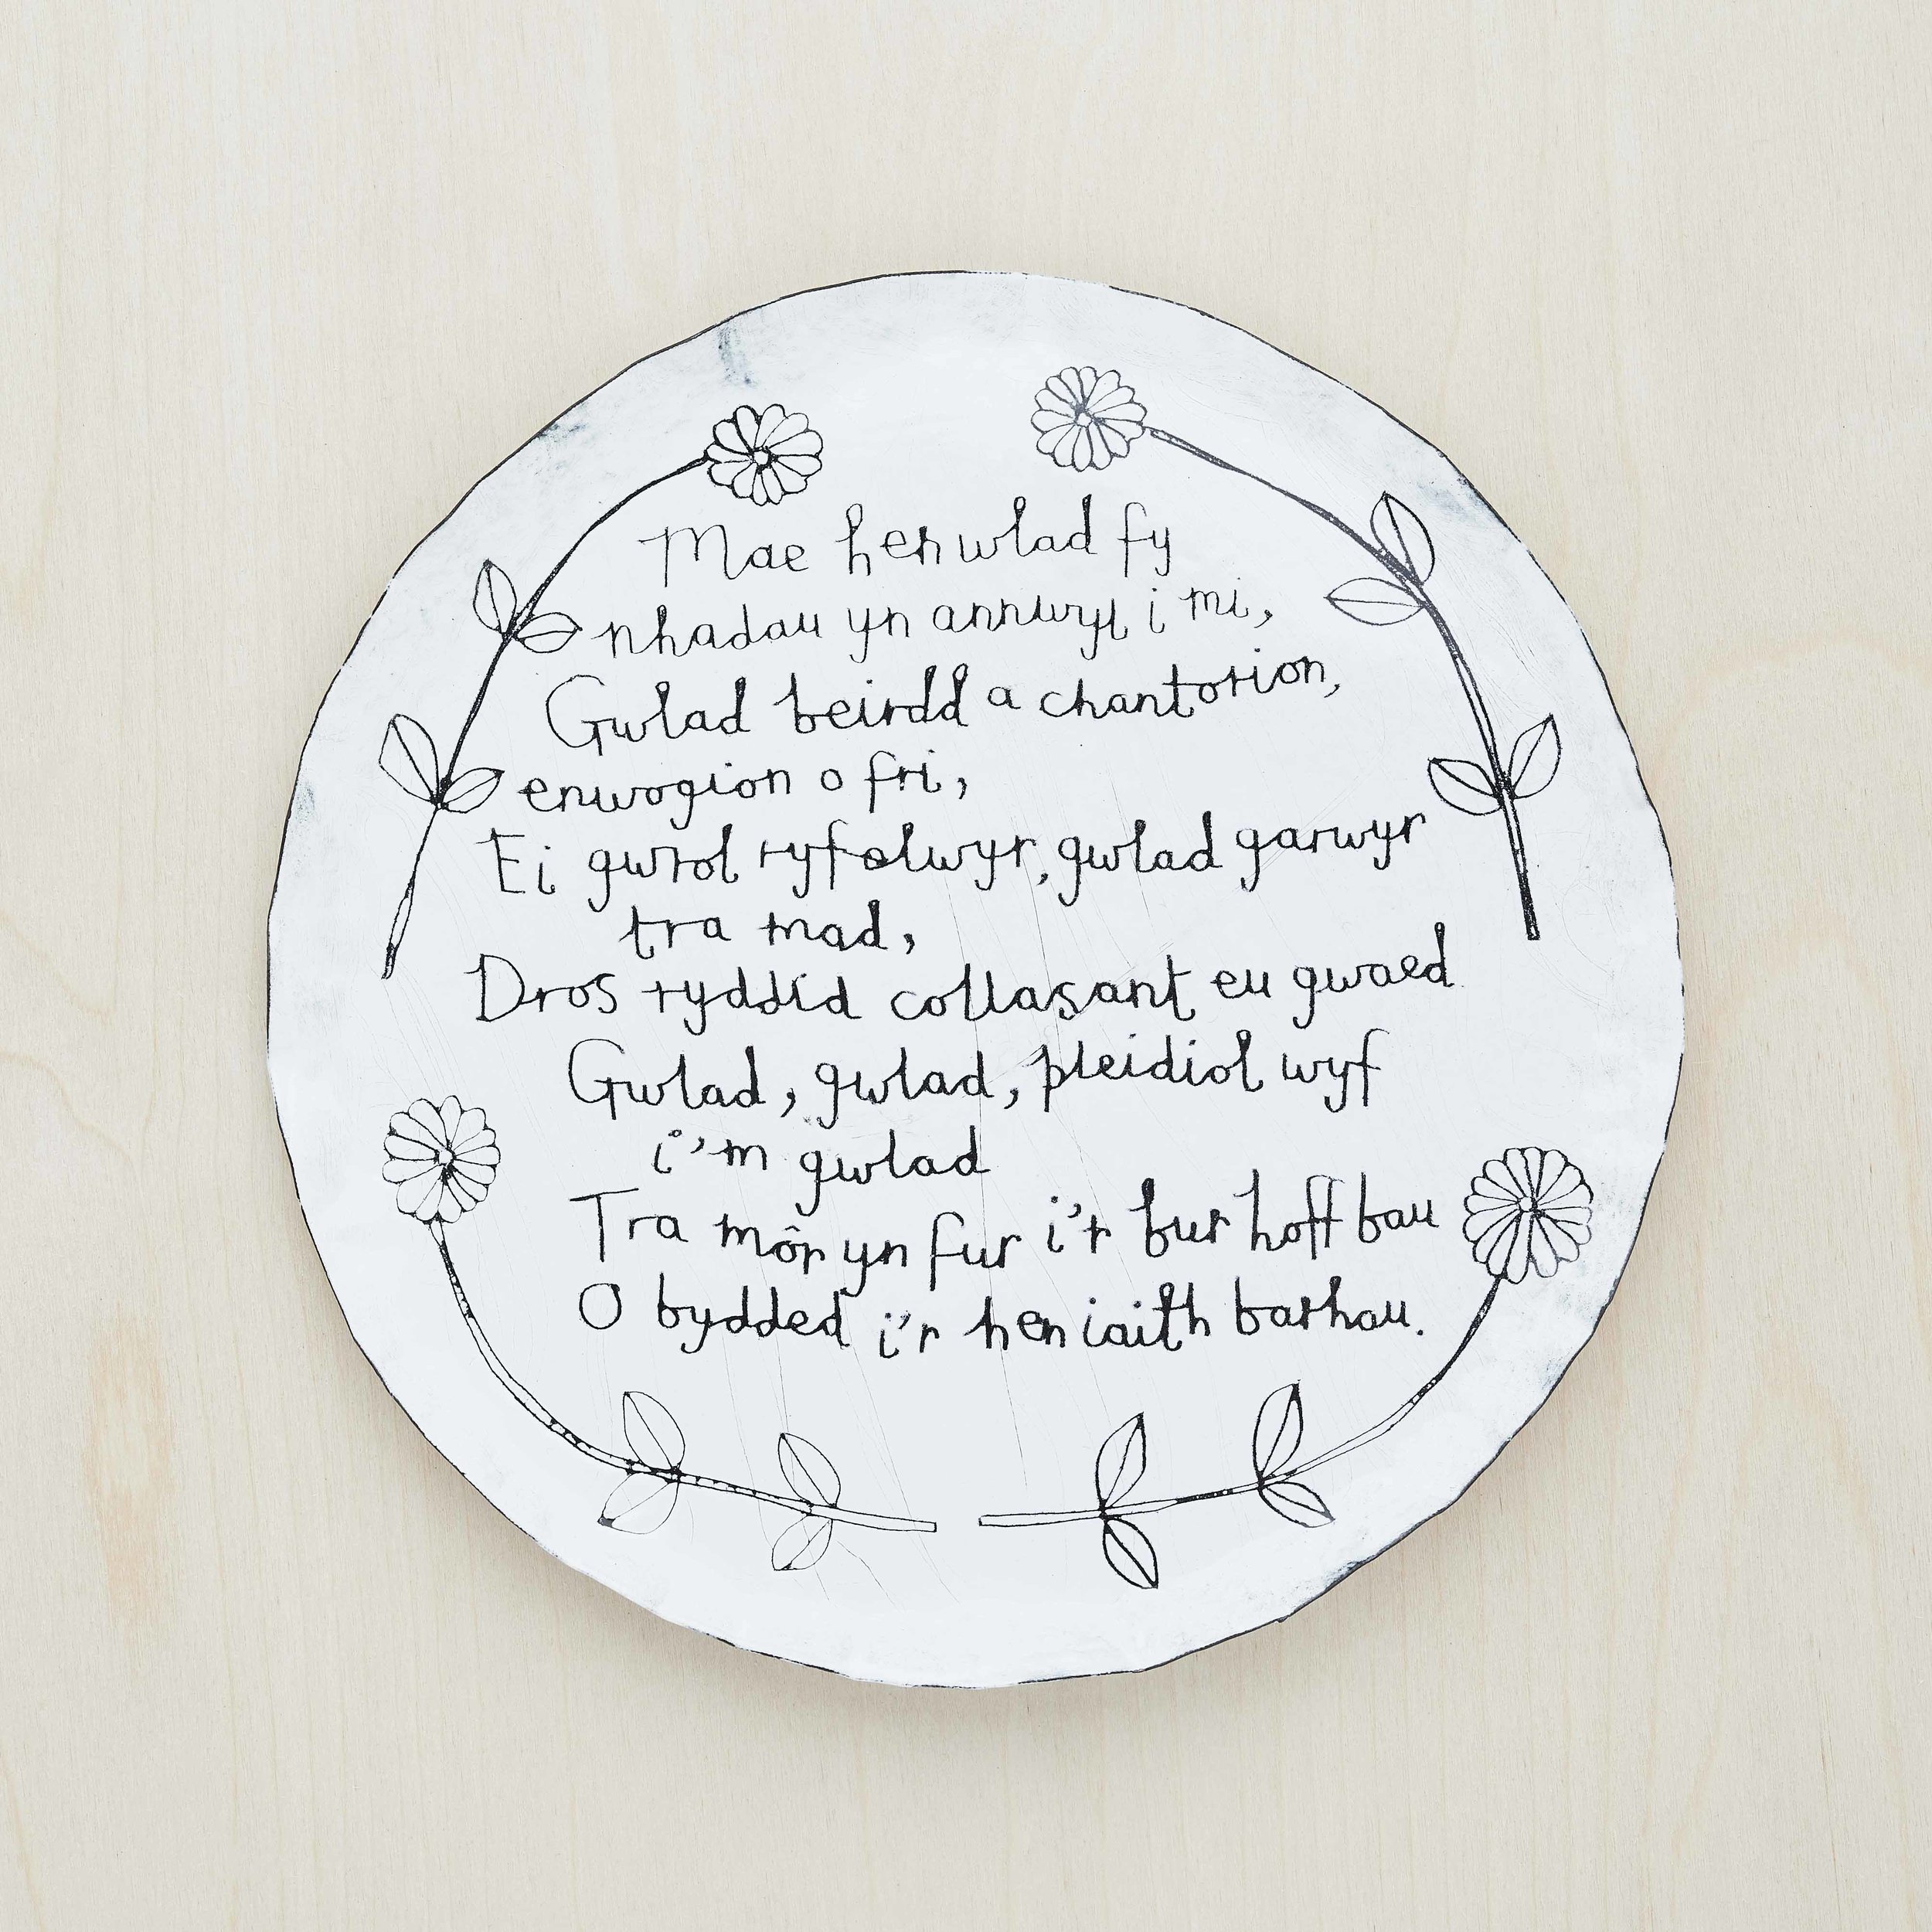 Mae hen wlad fy
nhadau yn annwyl i mi,
Gwlad beirdd a chantorion,
enwogion o fri,
Ei gwrol ryfelwyr, gwlad garwyr
tra mad,
Dros ryddid collasant eu gwaed
Gwlad, gwlad, pleidiol wyf
i'm gwlad
Tra môr yn fur i'r bur hoff bau
O bydded i'r hen iaith barhau.